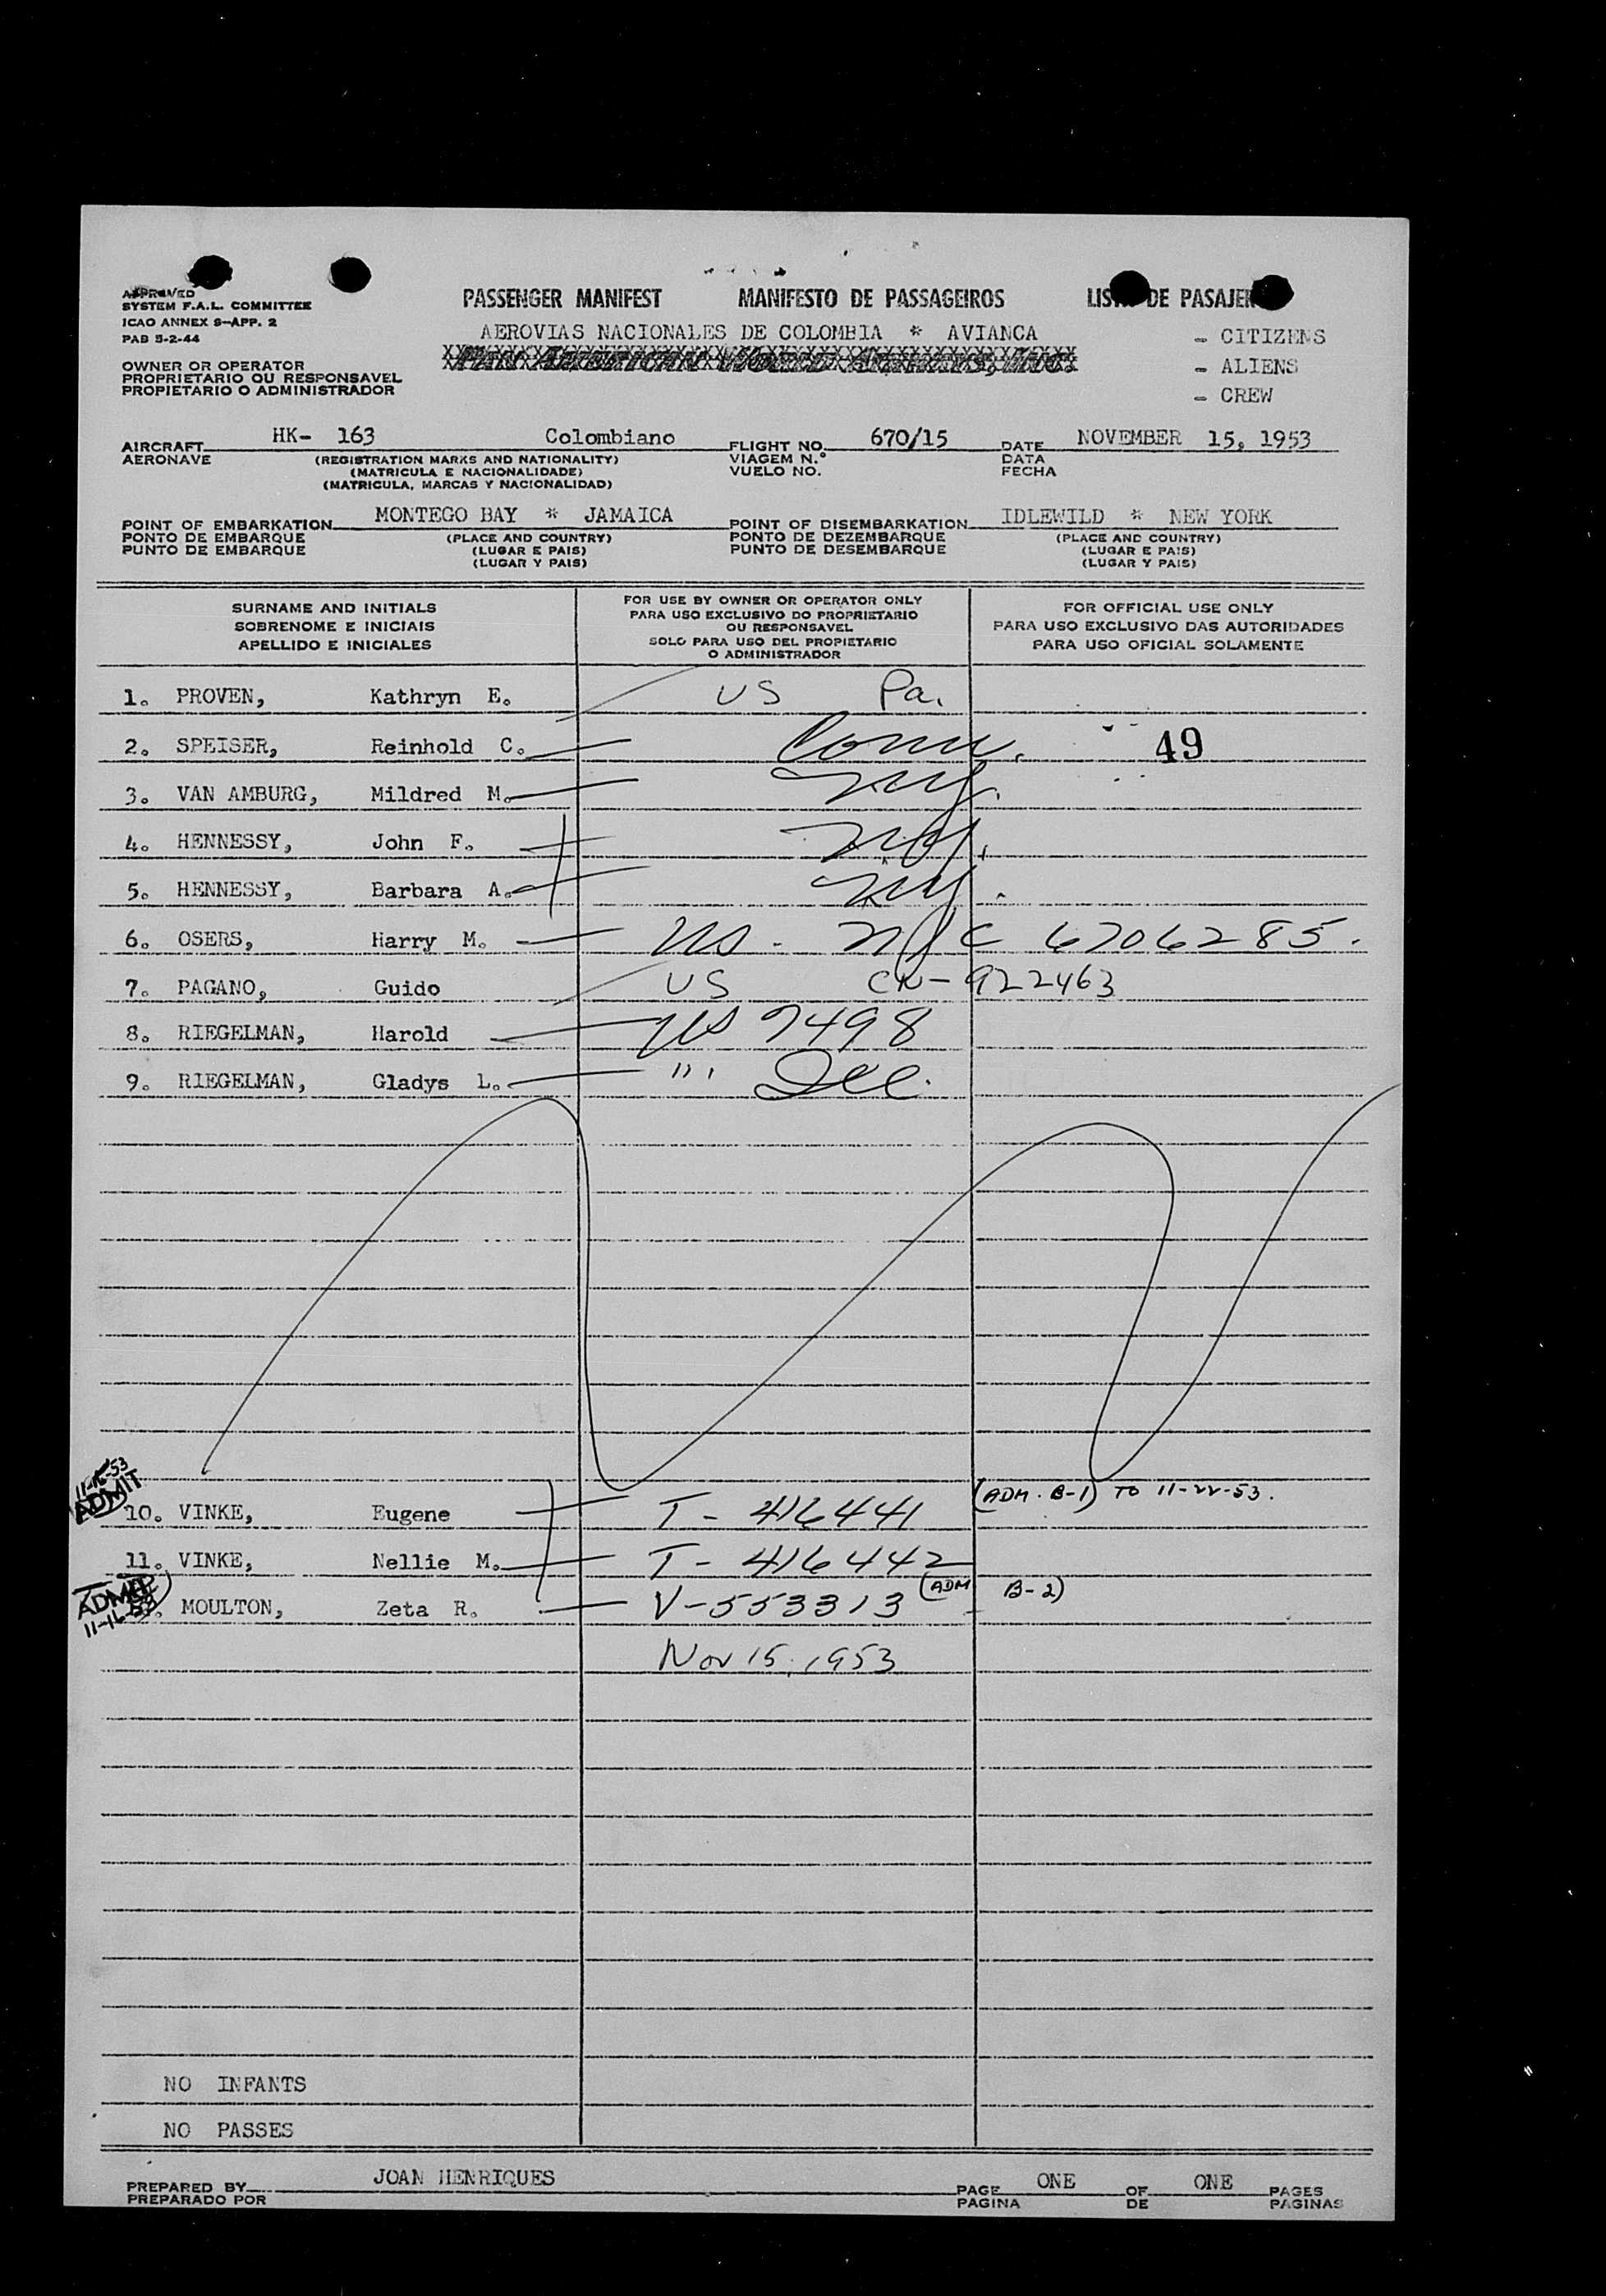 APPROVED
SYSTEM F.A.L. COMMITTEE
ICAO ANNEX 9-APP. 2
PAB 5-2-44
PASSENGER MANIFEST MANIFESTO DE PASSAGEIROS DE
AEROVIAS NACIONALES DE COLOMBIA * AVIANCA
PAN AMERICAN WORLD AIRWAYS, INC.
- CITIZENS
- ALIENS
- CREW
OWNER OR OPERATOR
PROPRIETARIO OU RESPONSAVEL
PROPIETARIO O ADMINISTRADOR
AIRCRAFT HK- 163 Colombiano FLIGHT NO. 670/15 DATE NOVEMBER 15, 1953
AERONAVE (REGISTRATION MARKS AND NATIONALITY) VIAGEM N.° DATA
(MATRICULA E NACIONALIDADE) VUELO NO. FECHA
(MATRICULA, MARCAS Y NACIONALIDAD)
POINT OF EMBARKATION MONTEGO BAY * JAMAICA POINT OF DISEMBARKATION IDLEWILD * NEW YORK
PONTO DE EMBARQUE (PLACE AND COUNTRY) PONTO DE DEZEMBARQUE (PLACE AND COUNTRY)
PUNTO DE EMBARQUE (LUGAR E PAIS) PUNTO DE DESEMBARQUE (LUGAR E PAIS)
(LUGAR Y PAIS) (LUGAR Y PAIS)
SURNAME AND INITIALS
SOBRENOME E INICIAIS
APELLIDO E INICIALES
FOR USE BY OWNER OR OPERATOR ONLY
PARA USO EXCLUSIVO DO PROPRIETARIO
OU RESPONSAVEL
SOLO PARA USO DEL PROPIETARIO
O ADMINISTRADOR
FOR OFFICIAL USE ONLY
PARA USO EXCLUSIVO DAS AUTORIDADES
PARA USO OFICIAL SOLAMENTE
1. PROVEN, Kathryn E. US Pa.
2. SPEISER, Reinhold C. Conn. 49
3. VAN AMBURG, Mildred M. NY.
4. HENNESSY, John F. NY.
5. HENNESSY, Barbara A. NY.
6. OSERS, Harry M. US. NY C 6706285.
7. PAGANO, Guido US CN-922463
8. RIEGELMAN, Harold US 7498
9. RIEGELMAN, Gladys L. "
ADMIT
(ADM. B-1) TO 11-22-53.
10. VINKE, Eugene T- 416441
11. VINKE, Nellie M. T- 416442
MOULTON, Zeta R. V-553313 (ADM B-2)
Nov 15, 1953
NO INFANTS
NO PASSES
PREPARED BY JOAN HENRIQUES PAGE ONE OF ONE PAGES
PREPARADO POR PAGINA DE PAGINAS